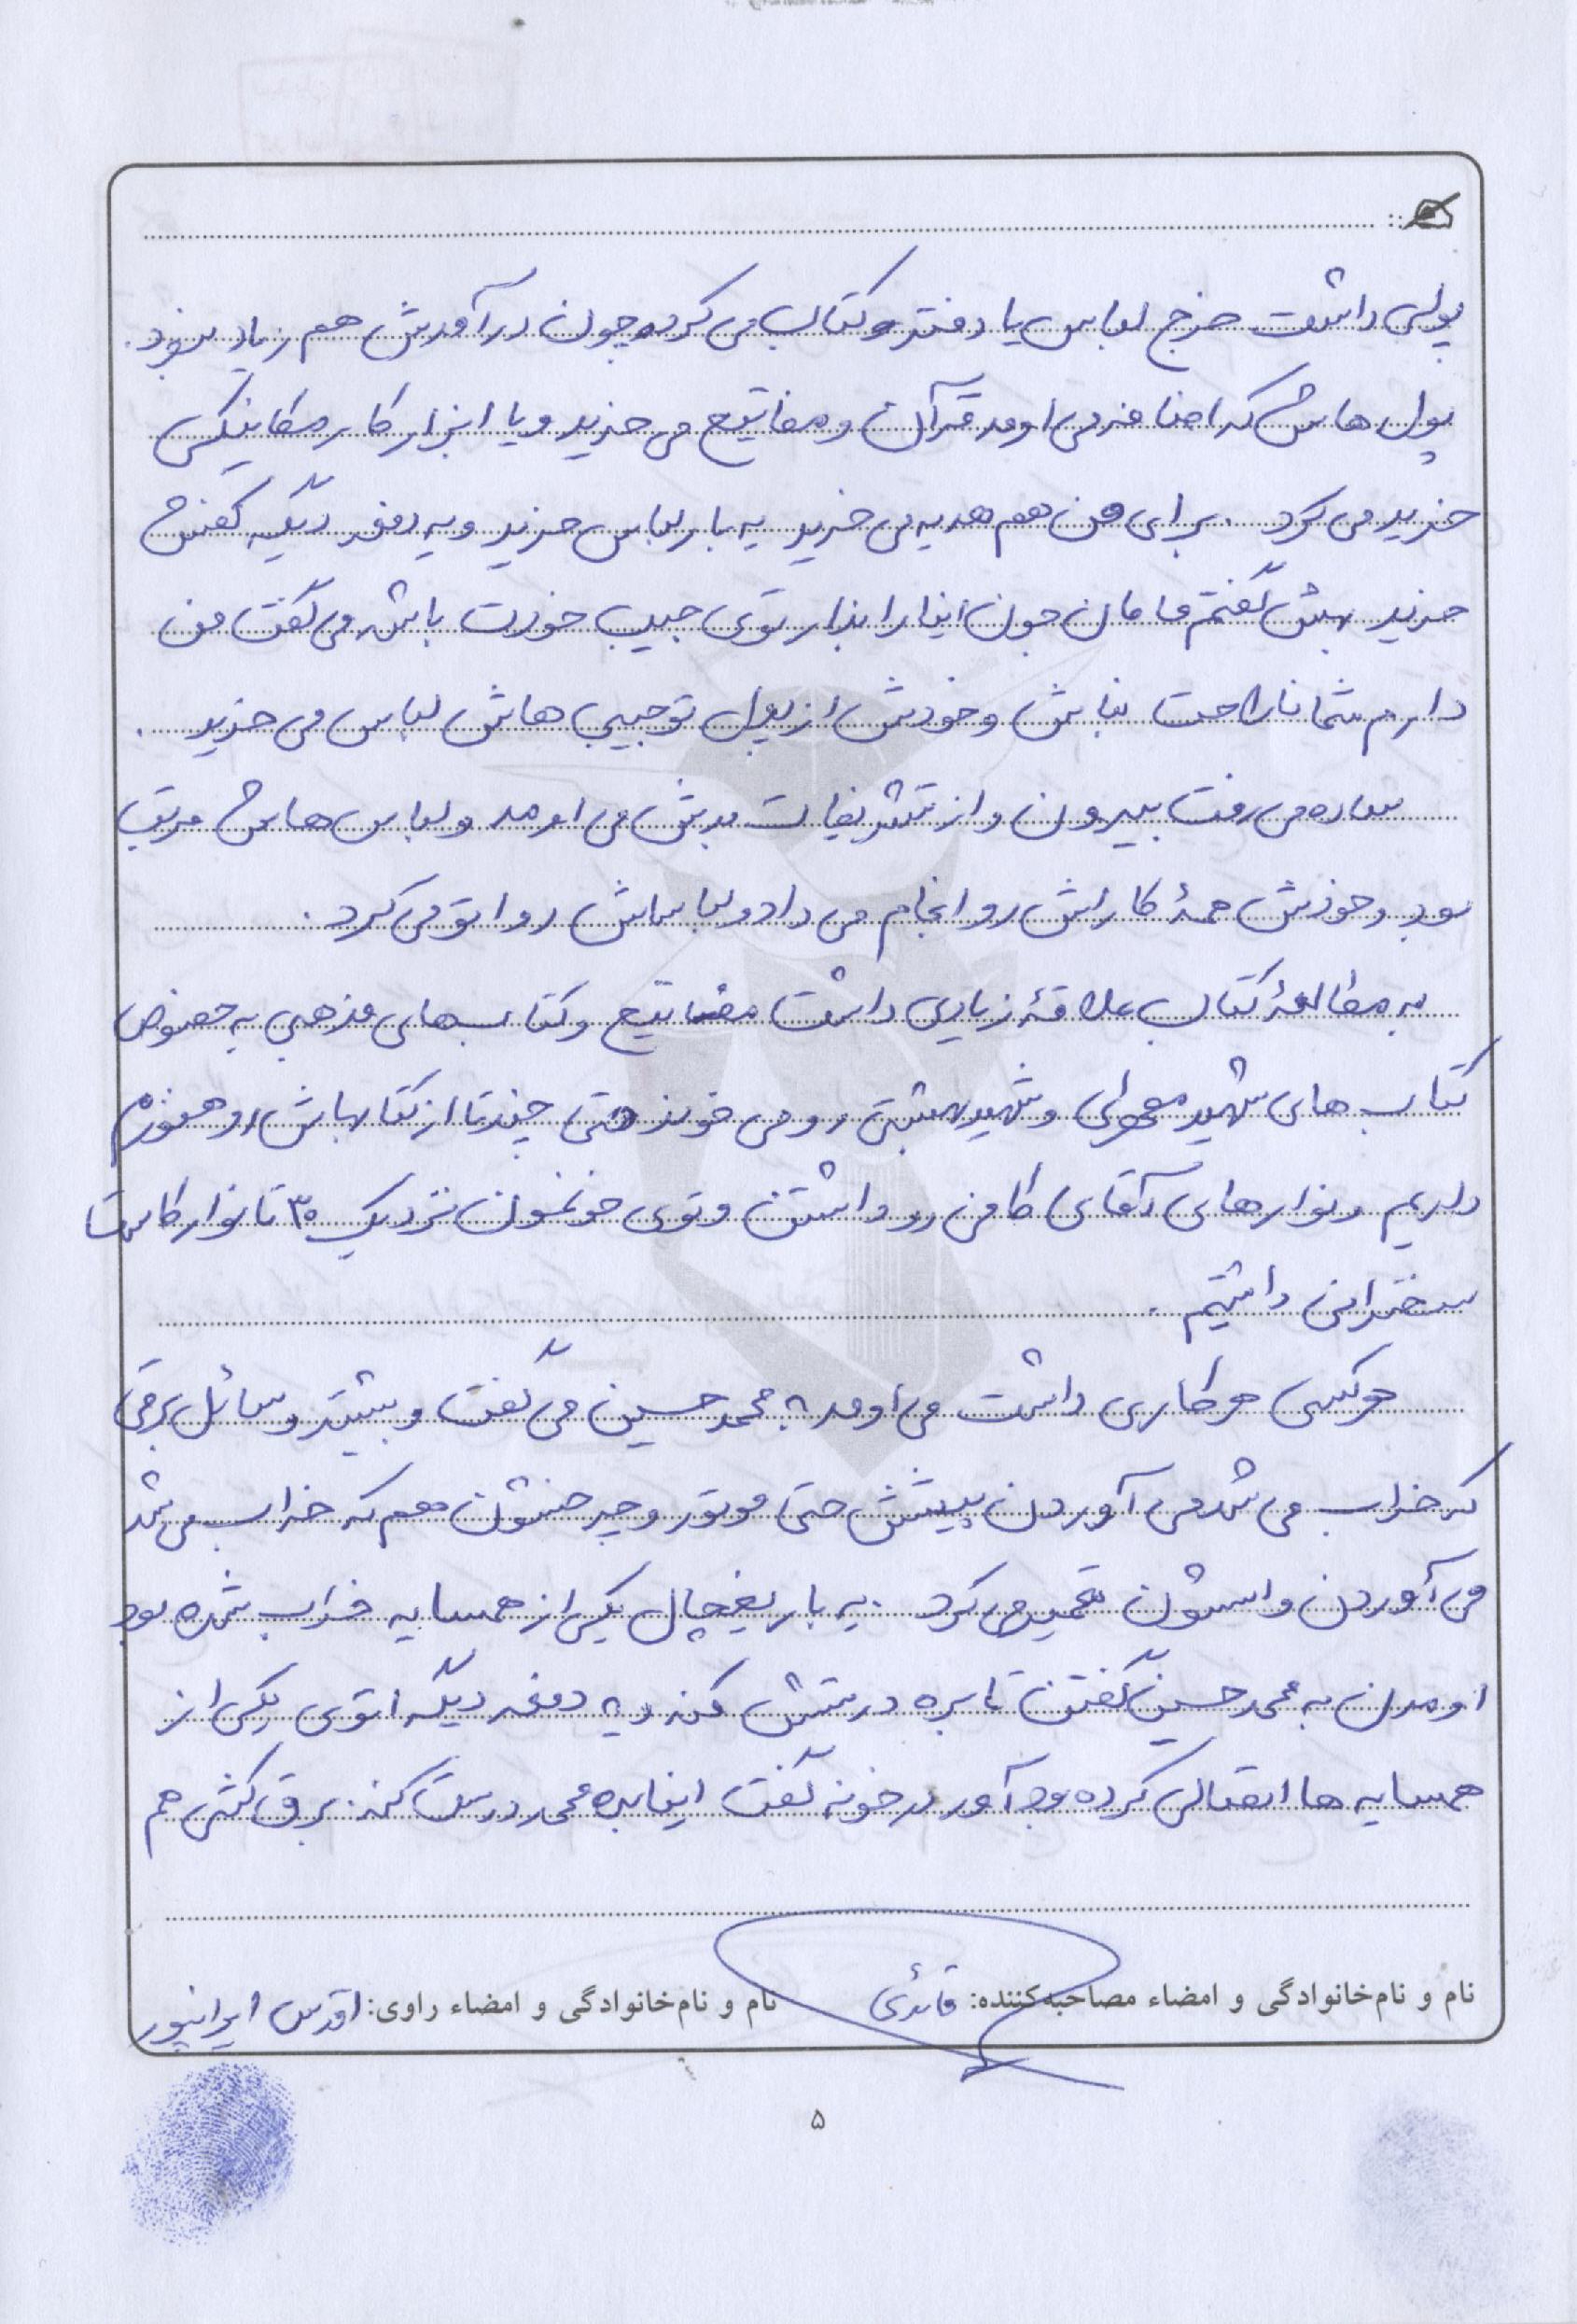 پولی داشت خرج لباس یا دفتر و کتاب می کرد چون درآمدش هم زیاد نبود.
پول هاش که اضافه می اومد قرآن و مفاتیح می خرید و یا ابزار کار مکانیکی
خرید می کرد. برای من هم هدیه می خرید یه بار لباس خرید و یه دفعه دیگه کفش
خرید بهش گفتم مامان جون اینا را بذار توی جیب خودت باشه، می گفت من
دارم شما ناراحت نباش و خودش از پول توجیبی هاش لباس می خرید.
ساده می رفت بیرون و از تشریفات بدش می اومد و لباس هاش مرتب
بود و خودش همۀ کاراش رو انجام می داد و لباساش رو اتو می کرد.
به مطالعۀ کتاب علاقۀ زیادی داشت مفاتیح و کتاب های مذهبی به خصوص
کتاب های شهید مطهری و شهید بهشتی رو می خوند حتی چندتا از کتابهاش رو هنوزم
داریم و نوارهای آقای کافی رو داشتن و توی خونمون نزدیک ۳۰ تا نوار کاست
سخنرانی داشتیم.
هرکسی هرکاری داشت می اومد به محمدحسین می گفت و بیشتر وسائل برقی
که خراب می شد می آوردن پیشش حتی موتور و چرخشون هم که خراب می شد
می آوردن واسشون تعمیر می کرد. یه بار یخچال یکی از همسایه خراب شده بود
اومدن به محمدحسین گفتن تا بره درستش کنه و یه دفعه دیگه اتوی یکی از
همسایه ها اتصالی کرده بود آورد در خونه گفت اینا بده محمد درست کنه. برق کشی هم
نام و نام‌خانوادگی و امضاء مصاحبه‌کننده: قائدی نام و نام‌خانوادگی و امضاء راوی: اقدس ایرانپور
۵